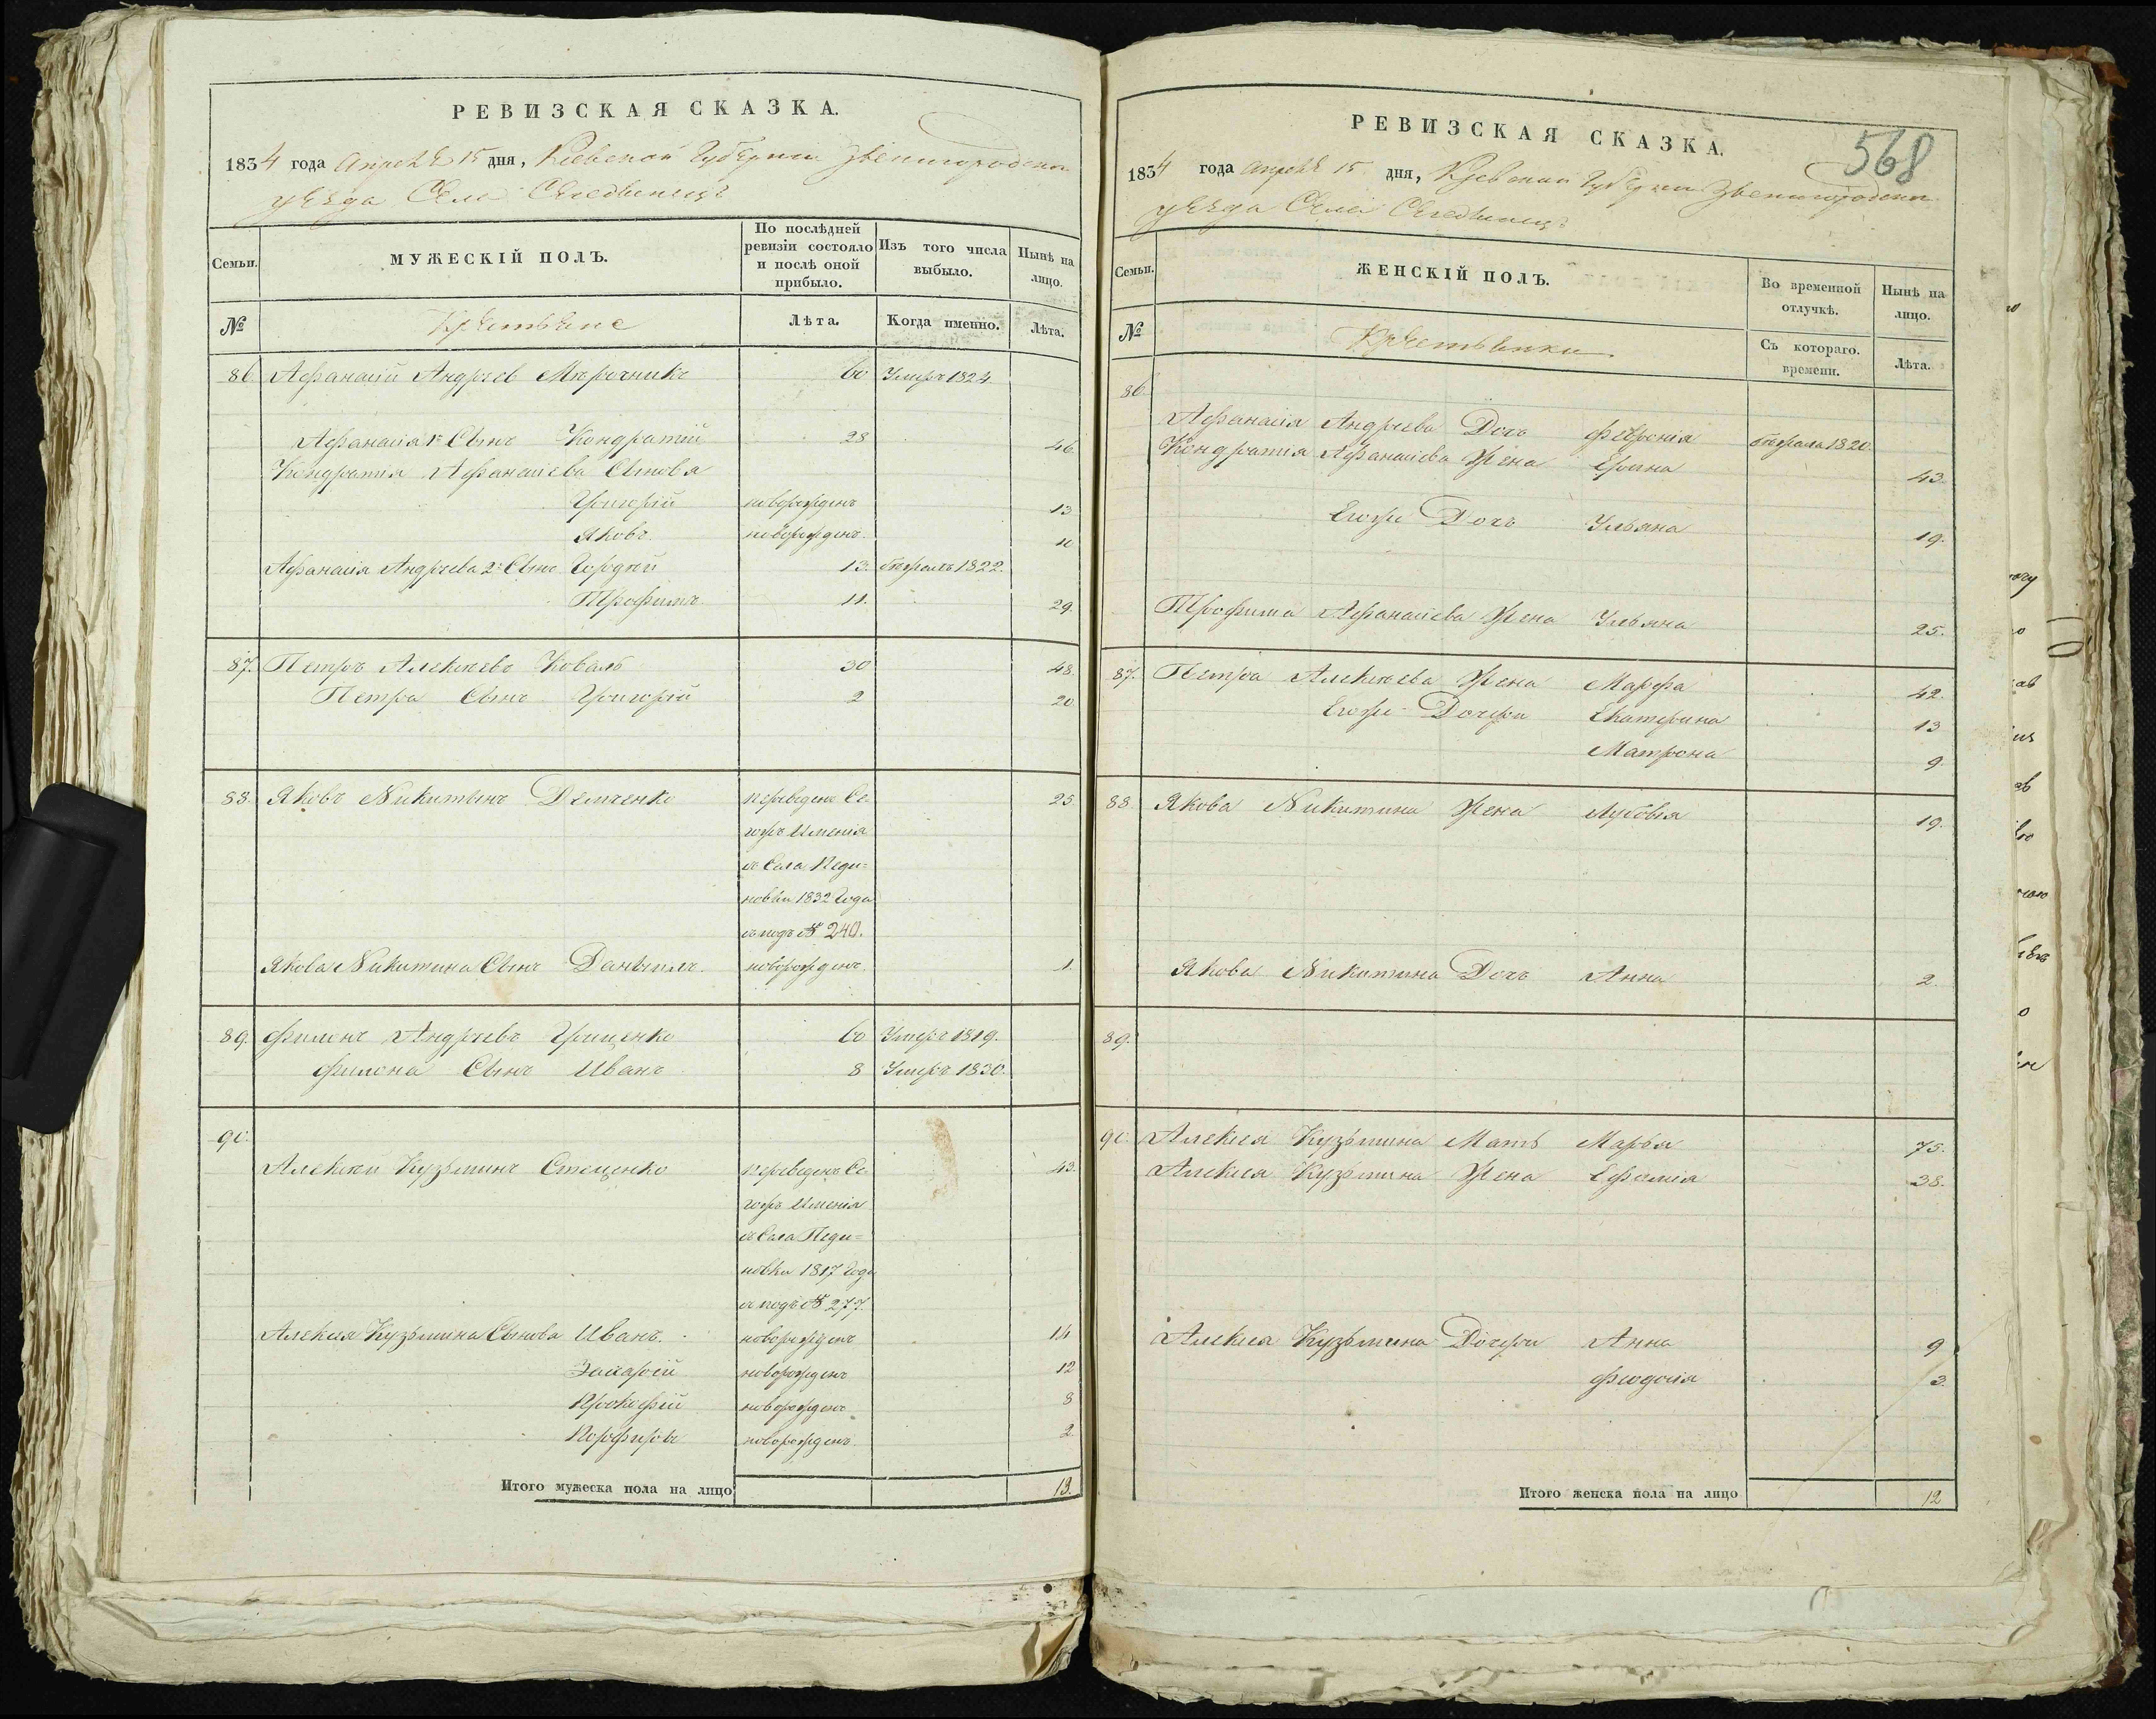 РЕВИЗСКАЯ СКАЗКА.
1834 года Апреля 15 дня, Киевской Губернии Звенигородского
уезда Села
Семьи.
МУЖЕСКІЙ ПОЛЪ.
По послѣдней ревизіи состояло и послѣ оной прибыло.
Изъ того числа выбыло.
Нынѣ на лицо.
№
Крестьяне
Лѣта.
Когда именно.
Лѣта.
86. Афанасій Андреев Мирочникъ 60 Умеръ 1824
Афанасія 1й Сынъ Кондратій 28 46
Кондратія Афанасіева Сыновья
Григорій новорожденъ 13
Яковъ. новорожденъ. 10
Афанасія Андреева 2й Сынъ Гордѣй 13. 1822.
Трофимъ 11. 29
87. Петръ Алексѣевъ Коваль 30 48
Петра Сынъ Григорій 2 20
88. Яковъ Никитинъ Демченко переведенъ Се- 25
гожъ Имѣнія
съ Села Педи=
новки 1832 Года
съ подъ № 240.
Якова Никитина Сынъ Даніилъ. новорожденъ. 1.
89. Филонъ Андреевъ Грищенко 60 Умеръ 1819.
Филона Сынъ Иванъ 8 Умеръ 1830.
90.
Алексѣй Кузьминъ Стеценко переведенъ Се- 43.
гожъ Имѣнія
съ Села Педи=
новки 1817 Года
съ подъ № 277.
Алексѣя Кузьмина Сынова Иванъ. новорожденъ 14
Захарій новорожденъ 12
Прокофій новорожденъ 8
Порфиръ новорожденъ. 2.
Итого мужеска пола на лицо 13.
568
РЕВИЗСКАЯ СКАЗКА.
1834 года Апреля 15 дня, Киевской Губернии Звенигородского
уезда Села
Семьи.
ЖЕНСКІЙ ПОЛЪ.
Во временной отлучкѣ.
Нынѣ на лицо.
№
Крестьянки
Съ котораго. времени.
Лѣта.
86.
Афанасія Андреева Дочь Февронія 1820
Кондратія Афанасіева Жена Ирина 43.
Егоже Дочь Ульяна 19.
Трофима Афанасіева Жена Ульяна 25.
87. Петра Алексѣева Жена Марфа 42.
Егоже Дочери Екатерина 13
Матрона 9.
88. Якова Никитина Жена Лусовья 19.
Якова Никитина Дочь Анна 2.
89.
90. Алексѣя Кузьмина Мать Марья 75.
Алексѣя Кузьмина Жена Ефимія 38.
Алексѣя Кузьмина Дочери Анна 9
Феодосія 3.
Итого женска пола на лицо 12